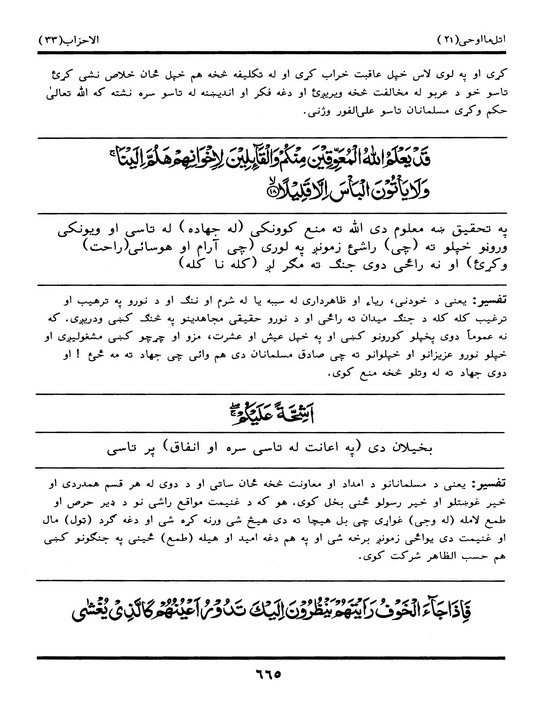 اتل ما اوحی (٢١)
الاحزاب (٣٣)
کړی او په لوی لاس خپل عاقبت خراب کړی او له تکلیفه څخه هم خپل ځان خلاص نشی کړئ
تاسو خو د عربو له مخالفت څخه ویریږئ او دغه فکر او اندیښنه له تاسو سره نشته که الله تعالیٰ
حکم وکړی مسلمانان تاسو علی‌الفور وژنی.
قَدْ يَعْلَمُ اللّٰهُ الْمُعَوِّقِيْنَ مِنْكُمْ وَالْقَآئِلِيْنَ لِاِخْوَانِهِمْ هَلُمَّ اِلَيْنَا ۚ
وَلَا يَاْتُوْنَ الْبَاْسَ اِلَّا قَلِيْلًا ۙ﴿١٨﴾
په تحقیق ښه معلوم دی الله ته منع کوونکی (له جهاده) له تاسی او ویونکی
وروڼو خپلو ته (چی) راشئ زمونږ په لوری (چی آرام او هوسائی(راحت)
وکړئ) او نه راځی دوی جنگ ته مگر لږ (کله نا کله)
تفسیر: یعنی د خودنی، ریاء او ظاهرداری له سببه یا له شرم او ننگ او د نورو په ترهیب او
ترغیب کله کله د جنگ میدان ته راځی او د نورو حقیقی مجاهدینو په څنگ کښی ودریږی. که
نه عموماً دوی پخپلو کورونو کښی او په خپل عیش او عشرت، مزو او چړچو کښی مشغولیږی او
خپلو نورو عزیزانو او خپلوانو ته چی صادق مسلمانان دی هم وائی چی جهاد ته مه ځئ ! او
دوی جهاد ته له وتلو څخه منع کوی.
اَشِحَّةً عَلَيْكُمْ ۚۖ
بخیلان دی (په اعانت له تاسی سره او انفاق) پر تاسی
تفسیر: یعنی د مسلمانانو د امداد او معاونت څخه ځان ساتی او د دوی له هر قسم همدردی او
خیر غوښتلو او خیر رسولو ځنی بخل کوی. هو که د غنیمت مواقع راشی نو د ډیر حرص او
طمع لامله (له وجی) غواړی چی بل هیچا ته دی هیڅ شی ورنه کړه شی او دغه گرد (ټول) مال
او غنیمت دی یواځی زمونږ برخه شی او په هم دغه امید او هیله (طمع) ځینی په جنگونو کښی
هم حسب الظاهر شرکت کوی.
فَاِذَا جَآءَ الْخَوْفُ رَاَيْتَهُمْ يَنْظُرُوْنَ اِلَيْكَ تَدُوْرُ اَعْيُنُهُمْ كَالَّذِيْ يُغْشٰى
٦٦٥